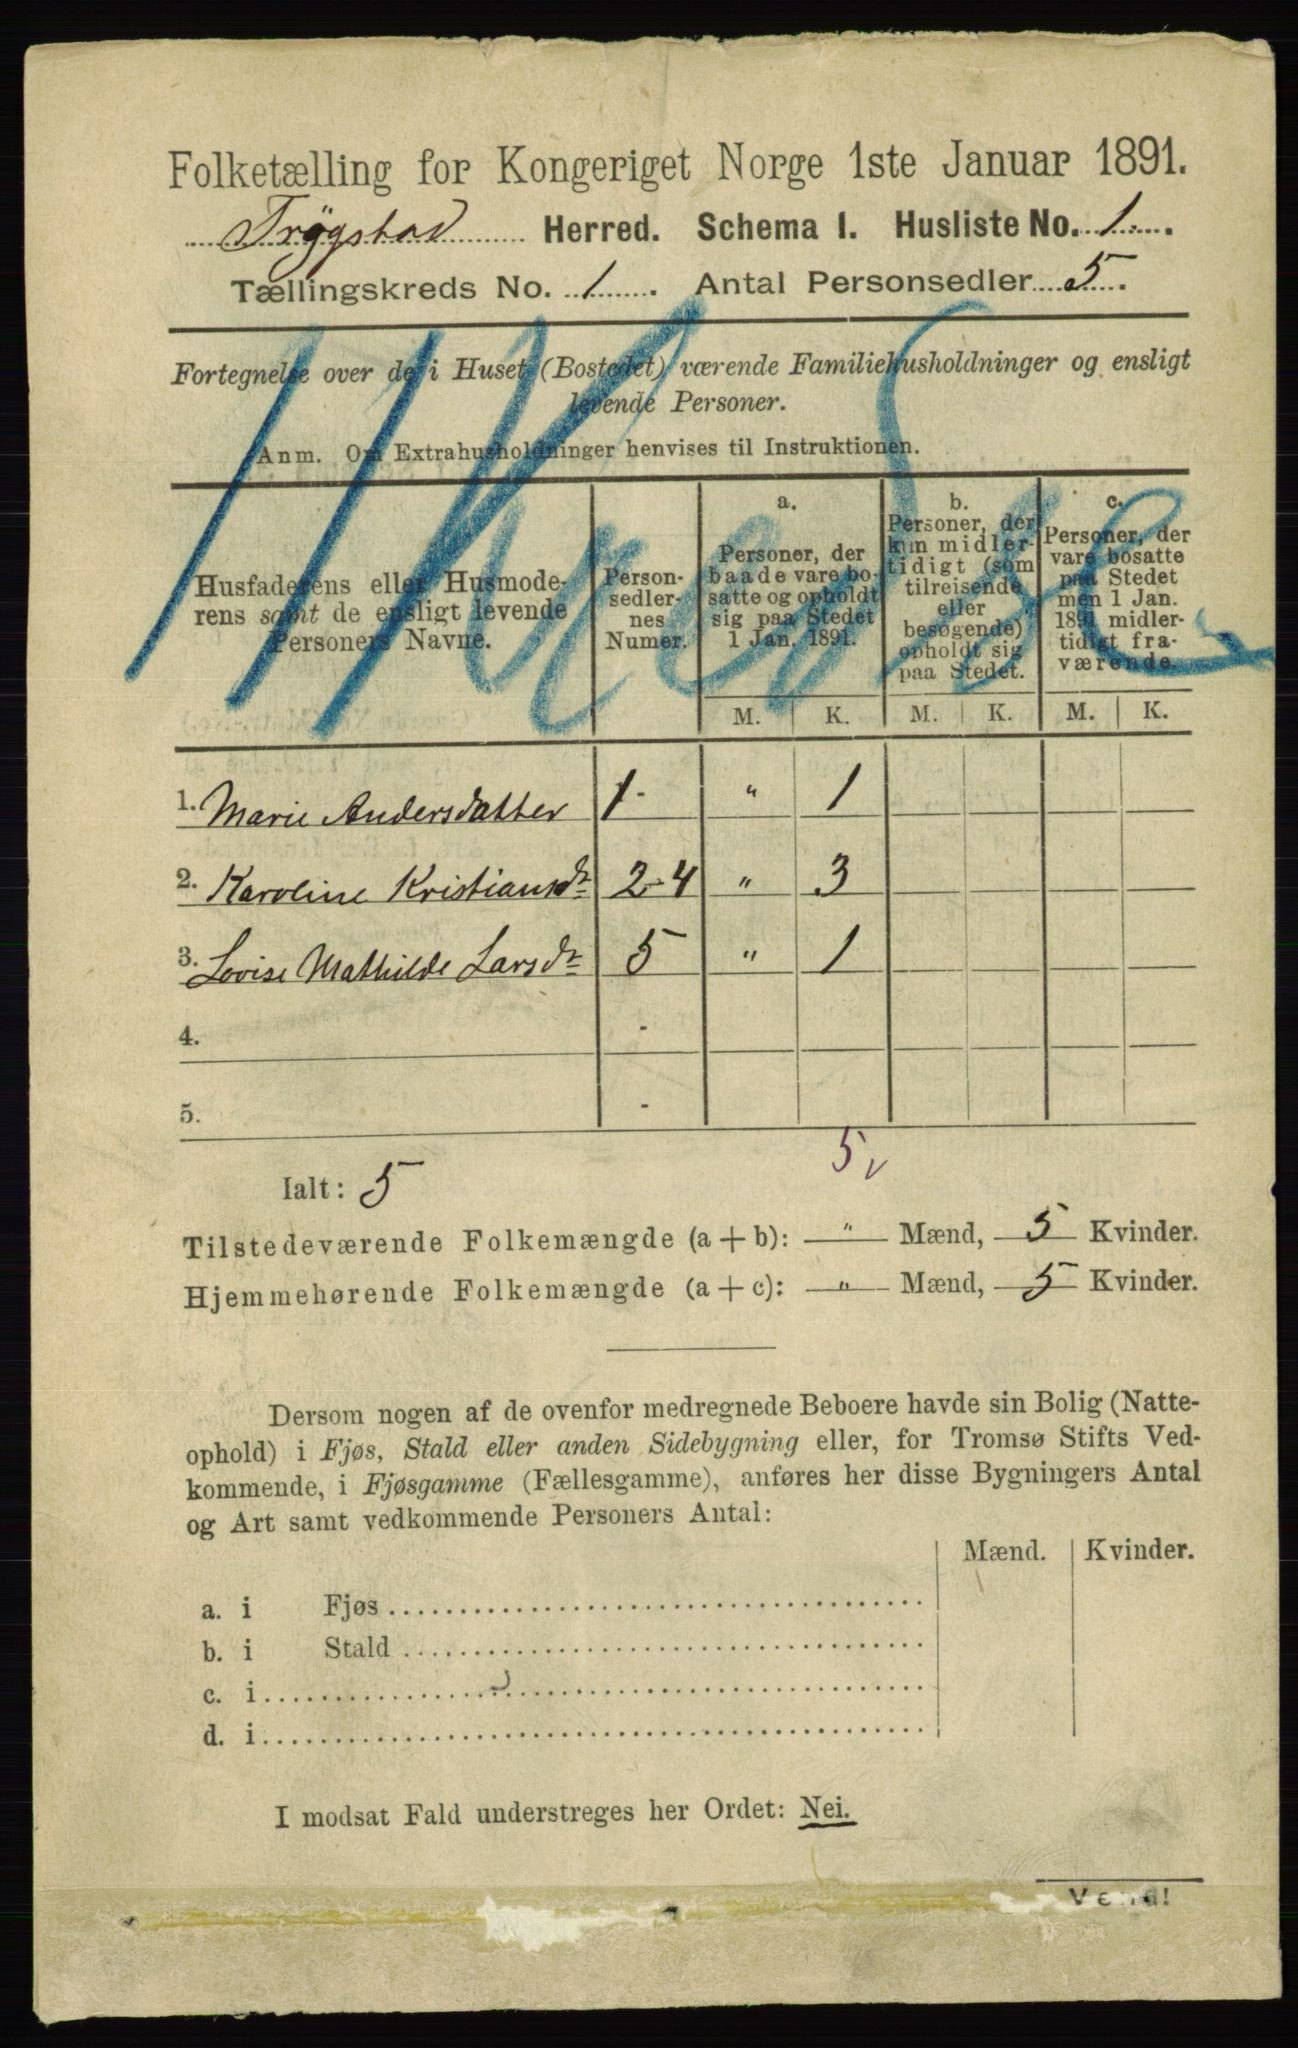 Folketælling for Kongeriget Norge 1ste Januar 1891.
Trøgstad Herred. Schema I. Husliste No. 1.
Tællingskreds No. 1. Antal Personsedler 5.
Fortegnelse over de i Huset (Bostedet) værende Familiehusholdninger og ensligt
levende Personer.
Anm. Om Extrahusholdninger henvises til Instruktionen.
Husfaderens eller Husmode-
rens samt de ensligt levende
Personers Navne.
Person-
sedler-
nes
Numer.
a.
Personer, der
baade vare bo-
satte og opholdt
sig paa Stedet
1 Jan. 1891.
b.
Personer, der
kun midler-
tidigt (som
tilreisende
eller
besøgende)
opholdt sig
paa Stedet.
c.
Personer, der
vare bosatte
paa Stedet
men 1 Jan.
1891 midler-
tidigt fra-
værende.
M. K. M. K. M. K.
1. Marie Andersdatter 1 - " 1
2. Karoline Kristiansdr 2-4 " 3
3. Lovise Mathilde Larsdr 5 " 1
4. -
5. -
5 v
Ialt: 5
Tilstedeværende Folkemængde (a + b): " Mænd, 5 Kvinder.
Hjemmehørende Folkemængde (a + c): " Mænd, 5 Kvinder.
Dersom nogen af de ovenfor medregnede Beboere havde sin Bolig (Natte-
ophold) i Fjøs, Stald eller anden Sidebygning eller, for Tromsø Stifts Ved-
kommende, i Fjøsgamme (Fællesgamme), anføres her disse Bygningers Antal
og Art samt vedkommende Personers Antal:
Mænd. Kvinder.
a. i Fjøs
b. i Stald
c. i
d. i
I modsat Fald understreges her Ordet: Nei.
Vend!